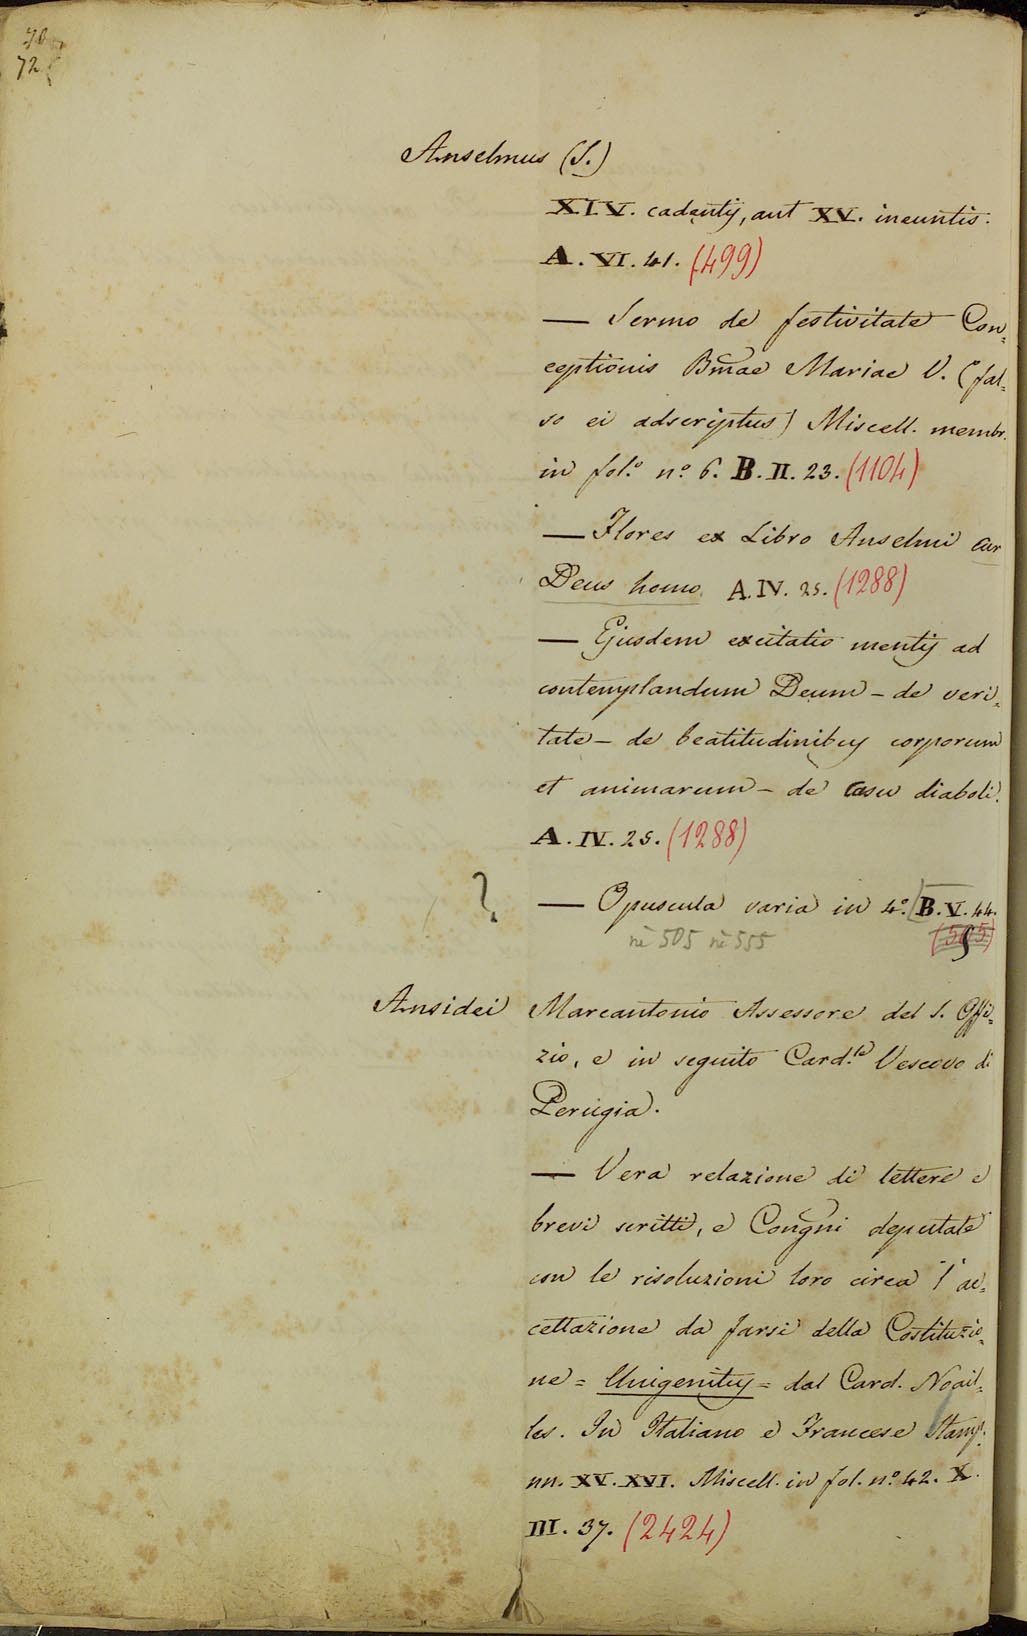 72
Anselmus (S.)
XIV. cadentis, aut XV. ineuntis.
A. VI. 41. (499)
— Sermo de festivitate Con=
ceptionis Bmae Mariae V. (fal=
so ei adscriptus) Miscell. membr.
in fol.º nº 6. B. II. 23. (1104)
— Flores ex Libro Anselmi cur
Deus homo. A. IV. 25. (1288)
— Ejusdem excitatio mentis ad
contemplandum Deum - de veri=
tate - de beatitudinibus corporum
et animarum - de casu diaboli.
A. IV. 25. (1288)
? — Opuscula varia in 4º. B. V. 44.
nè 505 nè 555
Ansidei Marcantonio Assessore del S. Offi=
zio, e in seguito Card.le Vescovo di
Perugia.
— Vera relazione di lettere e
brevi scritti, e Congni deputate
con le risoluzioni loro circa l'ac=
cettazione da farsi della Costituzio=
ne = Unigenitus = dal Card. Noail=
les. In Italiano e Francese Stamp.
nn. XV. XVI. Miscell. in fol. nº 42. X.
III. 37. (2424)